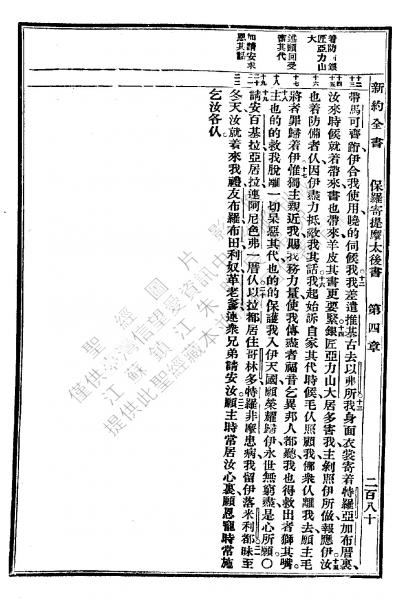 新約全書 保羅寄提摩太後書 第四章 二百八十
着防銀
匠亞力山
大
述願回受
審其代
加請安求
恩其話
十二
十三
十四
十五
十六
十七
十八
十九
二十
二一
二二
帶馬可齊跡伊合我使用晚的伺候我我差遣推基古去以弗所我身面衣裳寄着特羅亞加布厝裏
汝來時候就着帶來書也帶來羊皮其書更要緊銀匠亞力山大居多害我主剩照伊所做報應伊汝
也着防備者仈因伊盡力抵敵我其話我起始訴自家其代時候毛仈照顧我佛衆仈離我去願主毛
將者罪歸着伊惟獨主親近我賜我務力量使我傳盡者福音乞異邦人都聽我也得救出者獅其嘴
主也的的救我脫離一切呆惡其代也的的保護我入伊天國願榮耀歸伊永世無窮盡是心所願〇
請安百基拉亞居拉連阿尼色弗一厝仈以拉都居住哥林多特羅非摩患病我留伊落米利都昧至
冬天汝就着來我禮友布羅布田利奴革老爹連衆兄弟請安汝願主時常居汝心裏願恩寵時常施
乞汝各仈
聖經圖片
僅供臺灣信望愛資訊中
江蘇鎮江朱
提供此聖經藏本